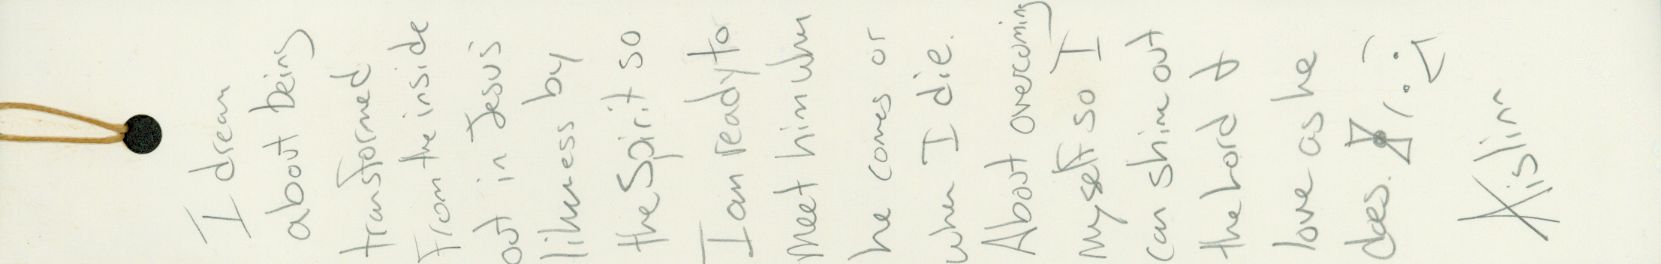 I dream
about being
transformed
From the inside
out in Jesus's
likness by
the Spirit so
I am ready to
Meet him when
he comes or
when I die.
About overcoming
myself so I
can shine out
the Lord &
love as he
does.
Kislinn